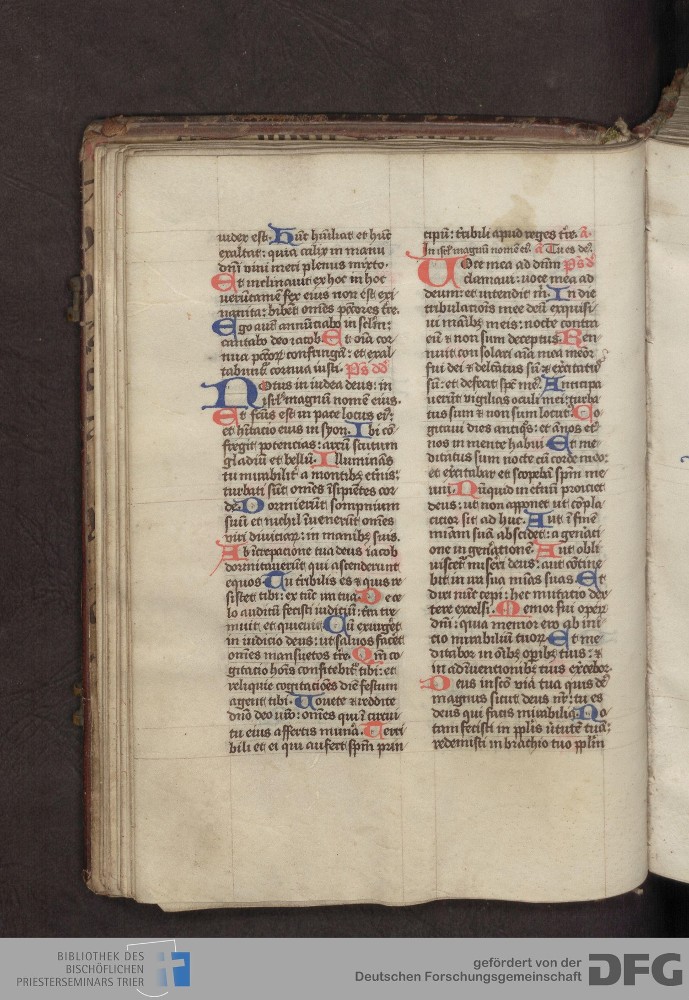 iudex est. Hūc hūiliat et hūc
exaltat: quia calix in manu
dn̄i vini meri plenus mixto.
Et inclinauit ex hoc in hoc
verūtamē fex eius non est exi
nanita: bibēt om̄es pctōres tr̄e.
Ego autē annūciabo in sclm̄:
cantabo deo iacob Et oīa cor
nua pctōꝝ confringā: et exal
tabunt᷑ cornua iusti. Ps dd
Notus in iudea deus: in
isrl̄ magnū nomē eius.
Et fcūs est in pace locus eiꝰ:
et hītatio eius in syon. Ibi cō
fregit potencias: arcū scutum
gladiū et bellū. Illuminās
tu mirabilit᷑ a montibꝫ et̄nis:
turbati sūt om̄es īsipiētes cor
de. Dormierūt sompnium
suū et nichil īuenerūt om̄es
viri diuiciaꝝ: in manibꝫ suis.
Ab īcrepacione tua deus iacob
dormitauerūt qui ascenderunt
equos Tu tr̄ibilis es ⁊ quis re
sistet tibi: ex tūc ira tua. De ce
lo auditū fecisti iudiciū: tr̄a tre
muit et quieuit. Cū exurḡet
in iudicio deus: ut saluos facet̄
om̄es mansuetos tr̄e. Qm̄ co
gitacio hoīs confitebit᷑ tibi: et
reliquie cogitaciōes diē festum
agent tibi. Uouete ⁊ reddite
dn̄o deo ur̄o: om̄es qui ī circui
tu eius affertis mun̄a. Terri
bili et ei qui aufert sp̄m prin
cipū: tr̄ibili apud reges tr̄e. A.
In isrl̄ magnū nomē eiꝰ. A Tu es deꝰ.
Uoce mea ad dn̄m Ps dd
clamaui: uoce mea ad
deum: et intendit m̄. In die
tribulacionis mee deū exquisi
ui manibꝫ meis: nocte contra
eū ⁊ non sum deceptus. Ren
nuit consolari aīa mea memor
fui dei ⁊ delc̄tatus sū ⁊ exc̄itatꝰ
sū: et defecit sp̄c meꝰ. Anticipa
uerūt vigilias oculi mei: turba
tus sum ⁊ non sum locutꝰ. Co
gitaui dies antiqs: et ānos et̄
nos in mente habui. Et me
ditatus sum nocte cū corde meo:
et exc̄itabar et scopebā sp̄m me
um. Nūquid in et̄nū proiciet
deus: ut non apponet ut cōpla
cicior sit ad huc. Aut ī finē
mīam suā abscidet: a gen̄aci
one in gen̄atione. Aut obli
uiscet᷑ misēri deus: aut cōtine
bit in ira sua mīas suas. Et
dixi nūc cepi: hec mutacio dex
tere excelsi. Memor fui operꝝ
dn̄i: quia memor ero ab ini
cio mirabiliū tuoꝝ. Et me
ditabor in oībꝫ opībꝫ tuis: ⁊
in adīuentionibꝫ tuis exc̄ebor.
Deus in scō via tua quis dēꝰ
magnus sicut deus nr̄: tu es
deus qui facis mirabilia. No
tam fecisti in ppl̄is ūtutē tuā:
redemisti in brachio tuo ppl̄m
BIBLIOTHEK DES
BISCHÖFLICHEN
PRIESTERSEMINARS TRIER
gefördert von der
Deutschen Forschungsgemeinschaft
DFG